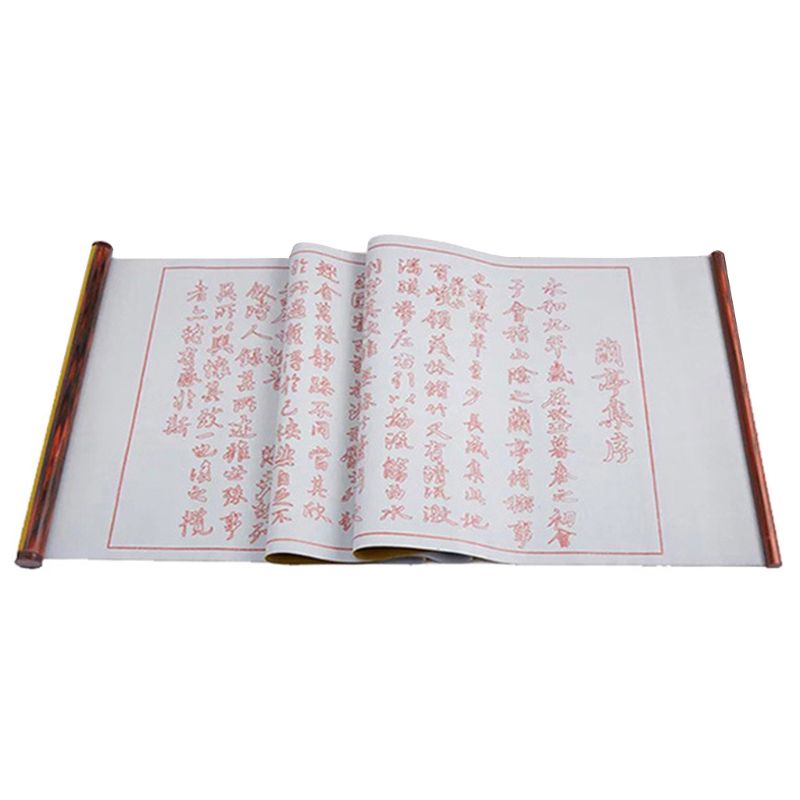 蘭亭集序
永和九年歲在癸丑暮春之初會
于會稽山陰之蘭亭脩禊事
也群賢畢至少長咸集此地
有崇山峻領茂林脩竹又有清流激
湍暎帶左右引以為流觴曲水
趣舍萬殊靜躁不同當其欣
於所遇暫得於己快然自足不
敘時人錄其所述雖世殊事
異所以興懷其致一也後之攬
者亦將有感於斯